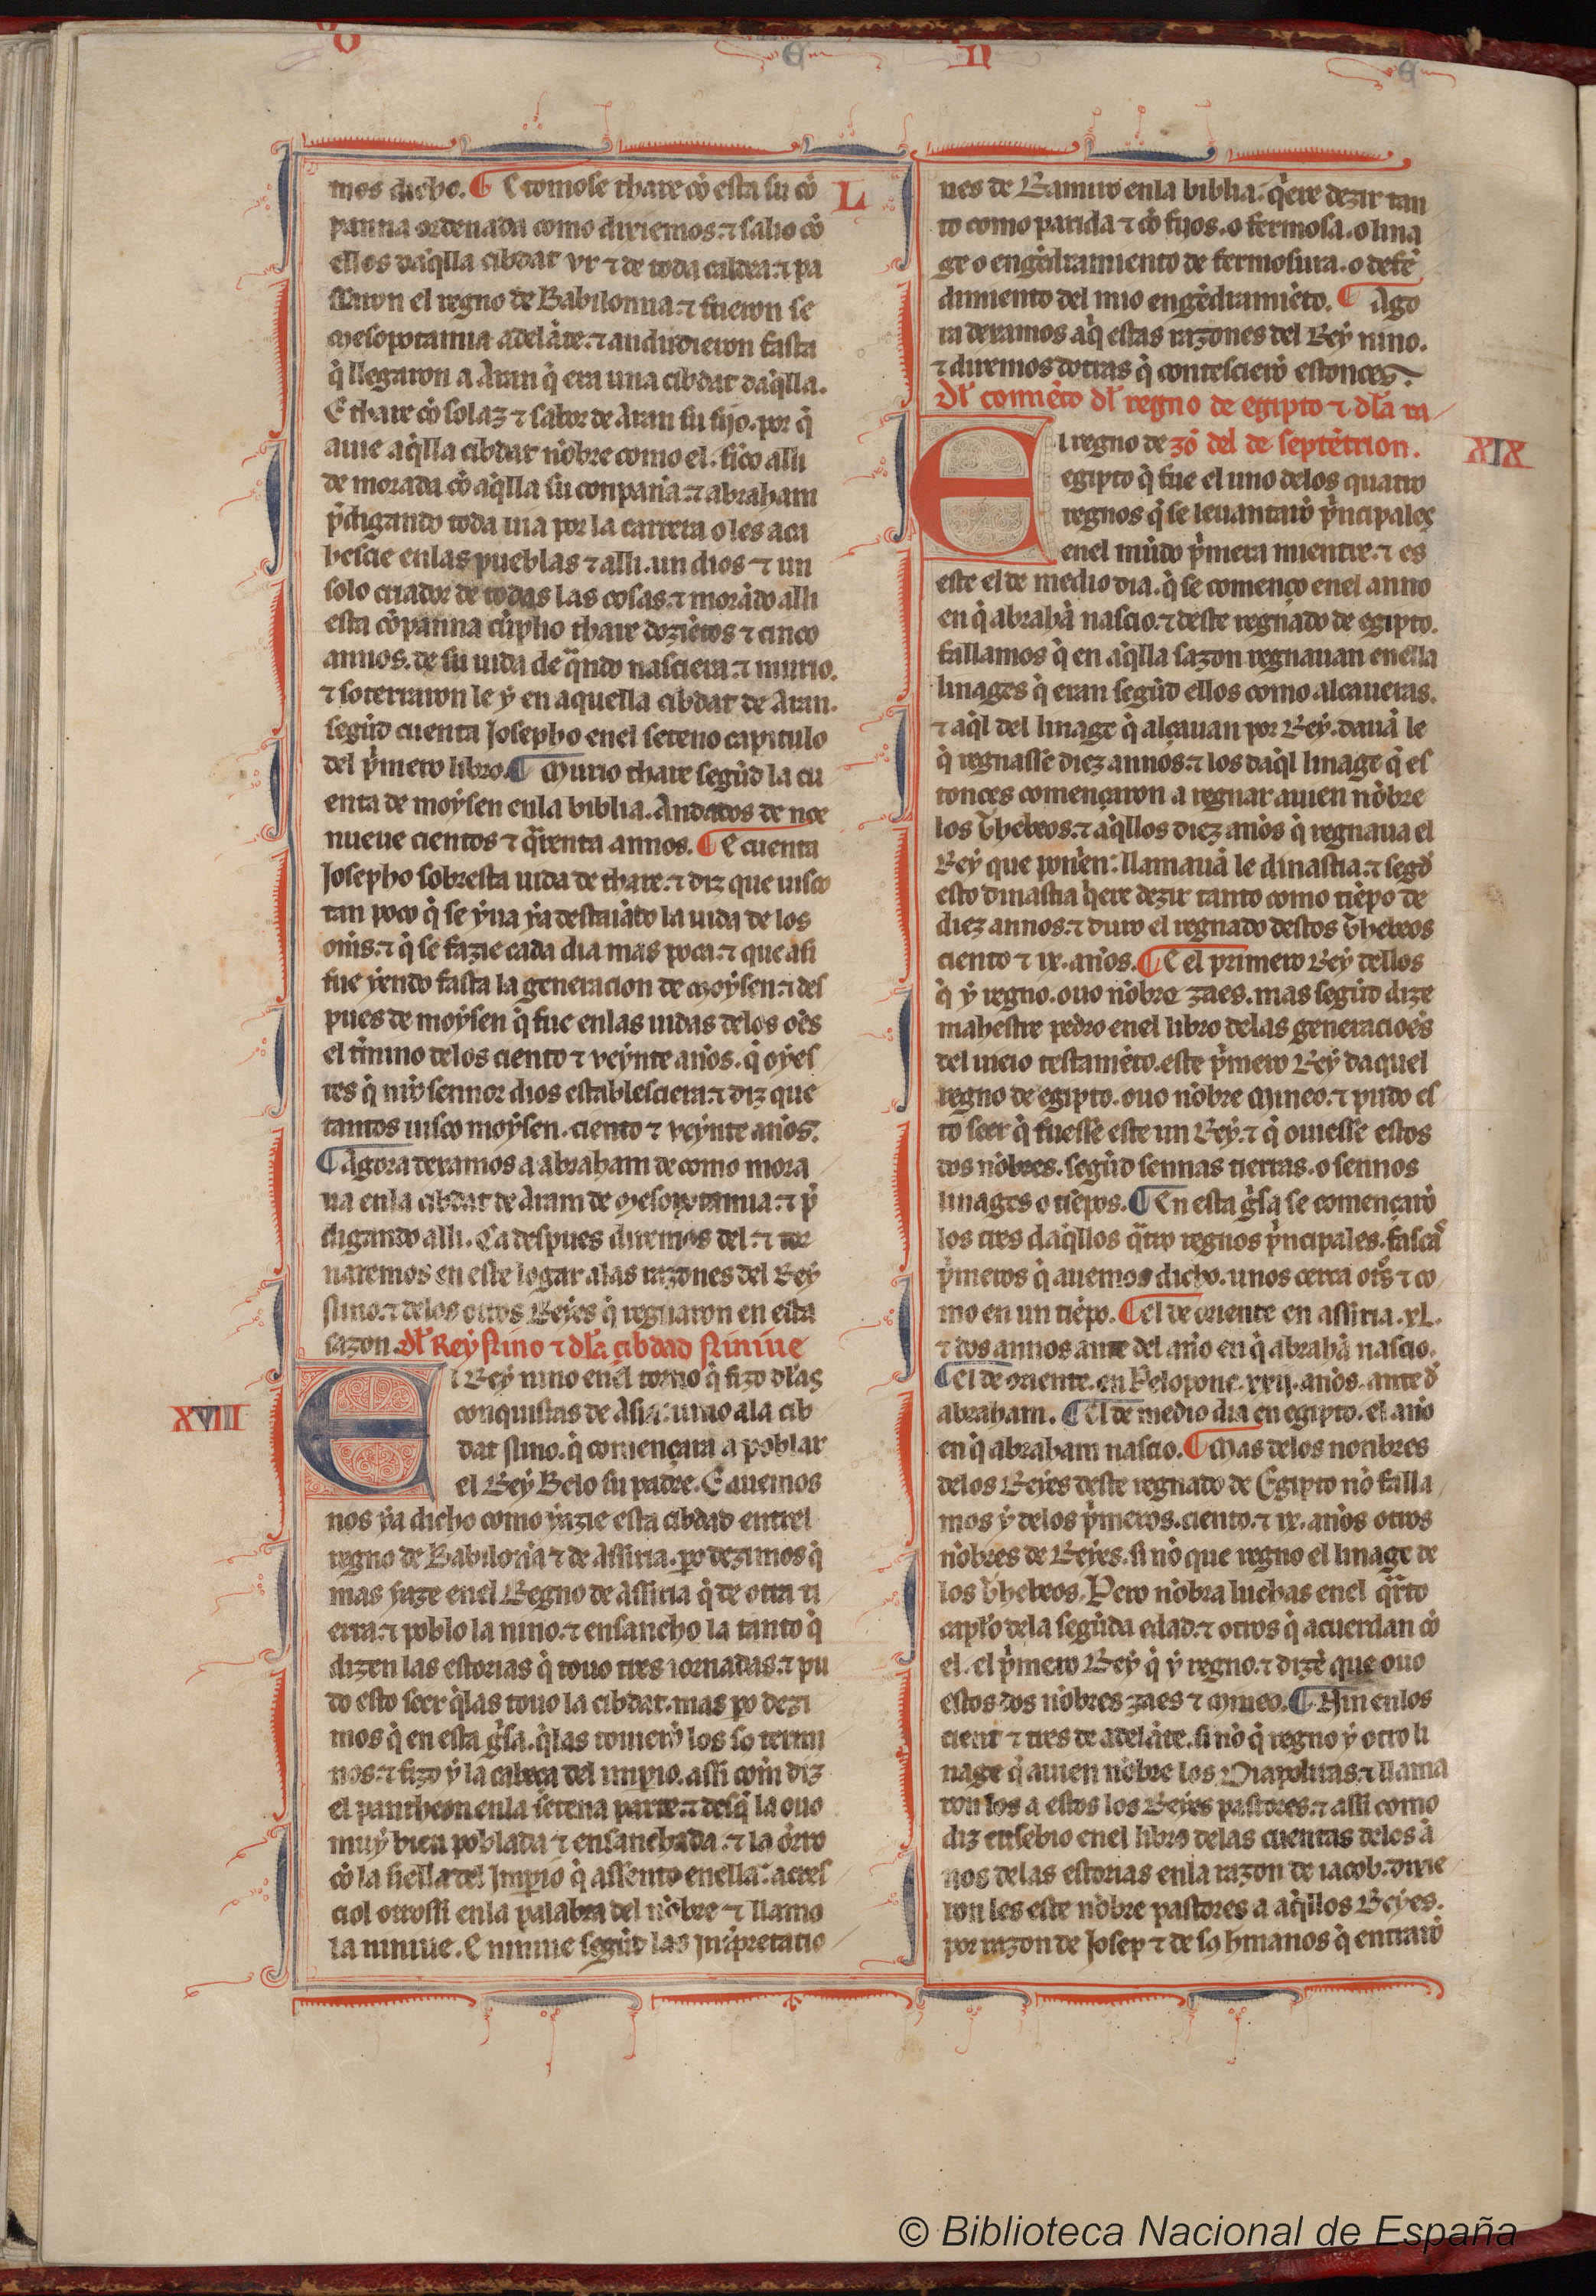 L
mos dicho. ¶ E tomose thare cõ esta su cõ
panna ordenada como diriemos. ⁊ salio cõ
ellos daq̃lla cibdat vr ⁊ de toda caldea. ⁊ pa
ssaron el regno de Babilonna. ⁊ fueron se
Mesopotamia adelãte. ⁊ andudieron fasta
q̃ llegaron a Aran q̃ era una cibdat daq̃lla.
E thare cõ solaz ⁊ sabor de Aran su fijo. por q̃
auie aq̃lla cibdat nõbre como el. fico alli
de morada cõ aq̃lla su conpañia. ⁊ abraham
p̃digando toda uia por la carrera o les aca
hescie enlas pueblas ⁊ alli. un dios ⁊ un
solo criador de todas las cosas. ⁊ morãdo alli
esta cõpanna cũplio thare doziẽtos ⁊ cinco
annos. de su uida de q̃ndo nasciera. ⁊ murio.
⁊ soterraron le ẏ en aquella cibdat de Aran.
segũd cuenta Josepho enel seteno capitulo
del p̃mero libro. ¶ Murio thare segũd la cu
enta de moẏsen enla biblia. Andados de noe
nueue cientos ⁊ q̃renta annos. ¶ E cuenta
Josepho sobresta uida de thare. ⁊ diz que uisco
tan poco q̃ se ẏua ẏa destaiãdo la uida de los
om̃s. ⁊ q̃ se fazie cada dia mas poca. ⁊ que assi
fue ẏendo fasta la generacion de Moẏsen. ⁊ des
pues de moẏsen q̃ fue enlas uidas delos oẽs
el t̃mino delos ciento ⁊ veẏnte años. q̃ oẏes
tes q̃ nr̃o sennor dios establesciera. ⁊ diz que
tantos uisco moẏsen. ciento ⁊ veẏnte años.
¶ Agora dexamos a abraham de como mora
ua enla cibdat de Aram de Mesopotamia. ⁊ p̃
digando alli. Ca despues diremos del. ⁊ tor
naremos en este logar alas razones del Reẏ
Nino. ⁊ delos otros Reẏes q̃ regnaron en esta
sazon. Dl̃ Reẏ Nino ⁊ dl̃a cibdad Niniue
XVIII
El Reẏ nino enel torno q̃ fizo dl̃as
conquistas de Asia: uino ala cib
dat Nino. q̃ començara a poblar
el Reẏ Belo su padre. E auemos
nos ẏa dicho como ẏazie esta cibdad entrel
regno de Babilonia ⁊ de Assiria. po dezimos q̃
mas ẏaze enel Regno de Assiria q̃ de otra ti
erra. ⁊ poblo la nino. ⁊ ensancho la tanto q̃
dizen las estorias q̃ touo tres iornadas. ⁊ pu
do esto seer q̃las touo la cibdat. mas po dezi
mos q̃ en esta g̃sa. q̃las touierõ los so termi
nos. ⁊ fizo ẏ la cabeça del imp̃io. assi com diz
el pantheon enla setena parte. ⁊ desq̃ la ouo
muẏ bien poblada ⁊ ensanchada. ⁊ la õrro
cõ la siella del Imperio q̃ assento enella: acres
ciol otrossi enla palabra del nõbre ⁊ llamo
la niniue. E niniue segũd las Int̃pretacio
nes de Ramiro enla biblia: q̃ere dezir tan
to como parida ⁊ cõ fijos. o fermosa. o lina
ge o engẽdramiento de fermosura. o defẽ
dimiento del mio engẽdramiẽto. ¶ Ago
ra dexamos aq̃ estas razones del Reẏ nino.
⁊ diremos dotras q̃ contescierõ estonces.
Dl̃ comiẽço dl̃ regno de egipto ⁊ dl̃a ra
zõ del de septẽtrion.
XIX
El regno de
egipto q̃ fue el uno delos quatro
regnos q̃ se leuantarõ p̃ncipales
enel mũdo p̃mera mientre. ⁊ es
este el de medio dia. q̃ se començo enel anno
en q̃ abrahã nascio. ⁊ deste regnado de egipto.
fallamos q̃ en aq̃lla sazon regnauan enella
linages q̃ eran segũd ellos como alcaueras.
⁊ aq̃l del linage q̃ alçauan por Reẏ. dauã le
q̃ regnasse diez annos. ⁊ los daq̃l linage q̃ es
tonces començaron a regnar auien nõbre
los thebeos. ⁊ aq̃llos diez años q̃ regnaua el
Reẏ que poniẽn: llamauã le dinastia. ⁊ segũd
esto dinastia q̃ere dezir tanto como tiẽpo de
diez annos. ⁊ duro el regnado destos thebeos
ciento ⁊ ix. años. ¶ E el primero Reẏ dellos
q̃ ẏ regno. ouo nõbre zaes. mas segũd dize
mahestre pedro enel libro delas generacioẽs
del uieio testamẽto. este p̃mero Reẏ daquel
regno de egipto. ouo nõbre Mineo. ⁊ pudo es
to seer q̃ fuesse este un Reẏ. ⁊ q̃ ouiesse estos
dos nõbres. segũd sennas tierras. o sennos
linages o tiẽpos. ¶ En esta g̃sa se començarõ
los tres daq̃llos q̃tro regnos p̃ncipales. fascã
p̃meros q̃ auemos dicho. unos cerca otr̃s ⁊ co
mo en un tiẽpo. ¶ El de oriente en assiria. xl.
⁊ dos annos ante del año en q̃ abrahã nascio.
¶ El de oriente. en Pelopone. xxij. años. ante d̃
abraham. ¶ El de medio dia en egipto. el año
en q̃ abraham nascio. ¶ Mas delos nonbres
delos Reẏes deste regnado de Egipto nõ falla
mos ẏ delos p̃meros. ciento. ⁊ ix. años otros
nõbres de Reẏes. si nõ que regno el linage de
los thebeos. Pero nõbra luchas enel q̃rto
capl̃o dela segũda edad. ⁊ otros q̃ acuerdan cõ
el. el p̃mero Reẏ q̃ ẏ regno. ⁊ dizẽ que ouo
estos dos nõbres zaes ⁊ Mineo. ¶ Nin enlos
cient ⁊ tres de adelãte. si nõ q̃ regno ẏ otro li
nage q̃ auien nõbre los Diapolitas. ⁊ llama
ron los a estos los Reẏes pastores. ⁊ assi como
diz eusebio enel libro delas cuentas delos ã
nos delas estorias enla razon de iacob. dixie
ron les este nõbre pastores a aq̃llos Reẏes.
por razon de Josep ⁊ de sꝯ hm̃anos q̃ entrarõ
© Biblioteca Nacional de España